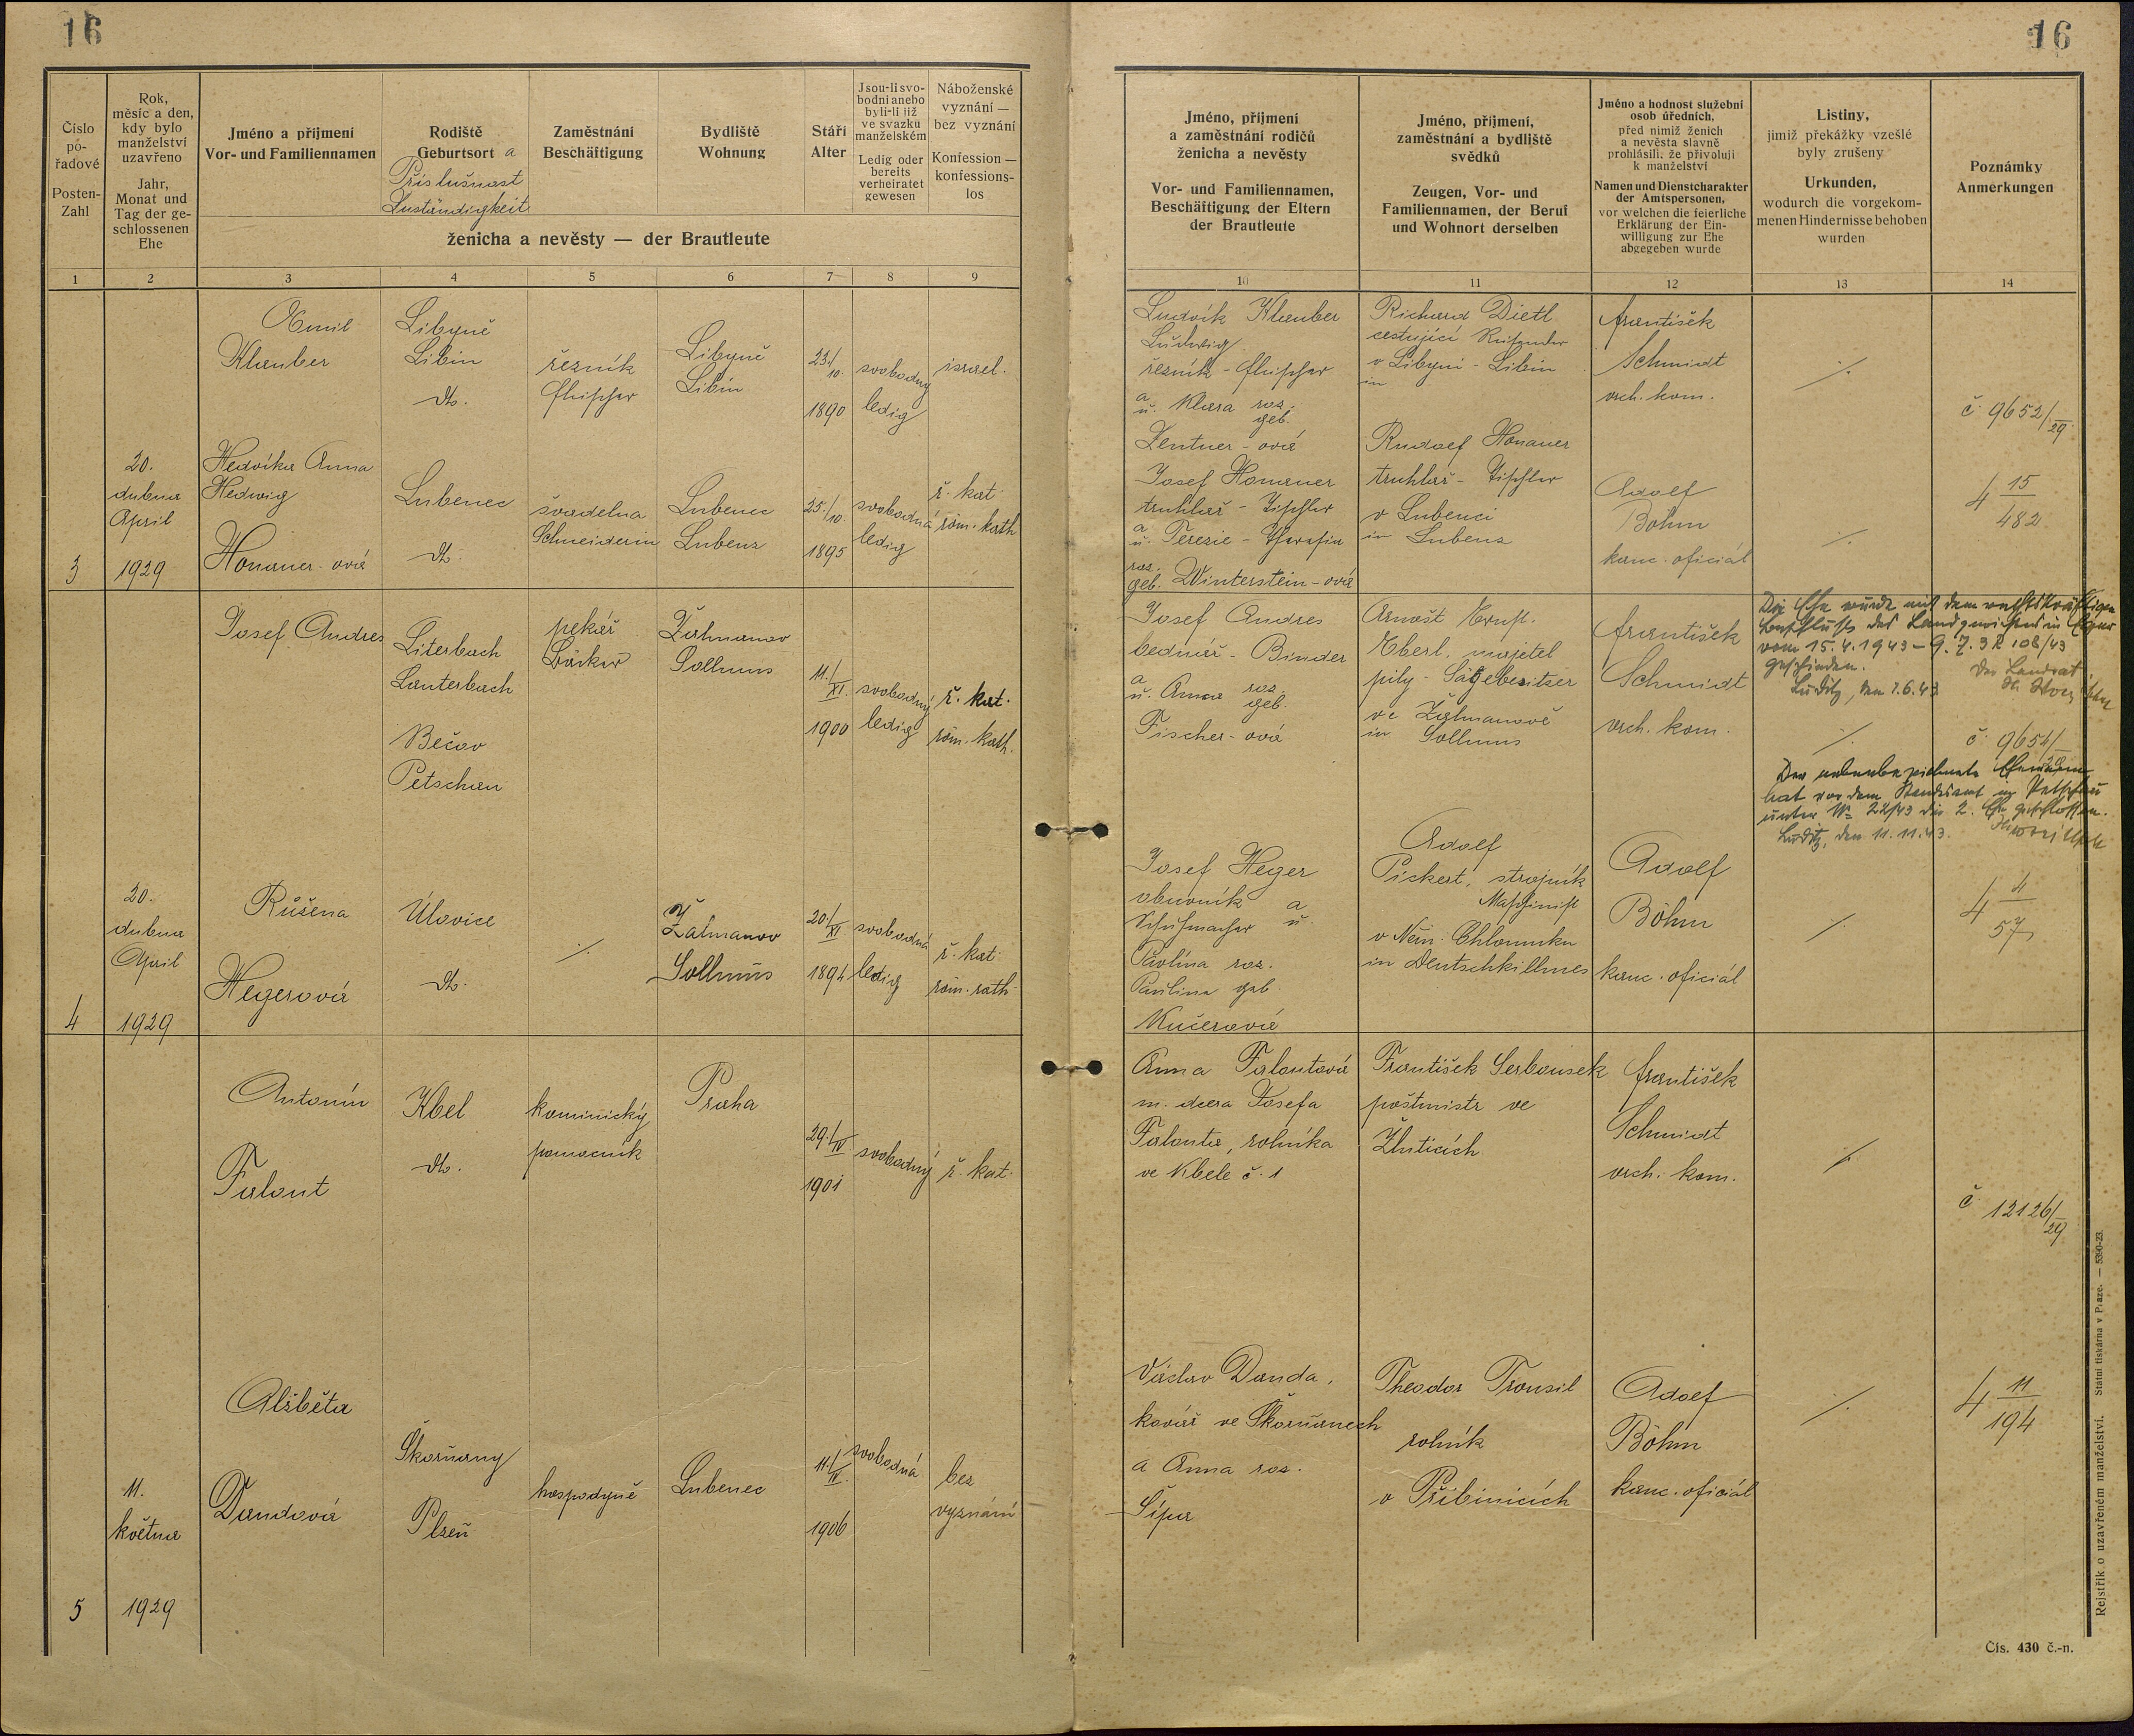 16
16
Číslo pořadové
Posten-Zahl
Rok, měsíc a den, kdy bylo manželství uzavřeno
Jahr, Monat und Tag der geschlossenen Ehe
Jméno a přijmení
Vor- und Familiennamen
Rodiště
Geburtsort a
Příslušnost
Zuständigkeit
Zaměstnání
Beschäftigung
Bydliště
Wohnung
Stáří
Alter
Jsou-li svobodni anebo byli-li již ve svazku manželském
Ledig oder bereits verheiratet gewesen
Náboženské vyznání — bez vyznání
Konfession — konfessionslos
ženicha a nevěsty — der Brautleute
Jméno, přijmení a zaměstnání rodičů ženicha a nevěsty
Vor- und Familiennamen, Beschäftigung der Eltern der Brautleute
Jméno, přijmení, zaměstnání a bydliště svědků
Zeugen, Vor- und Familiennamen, der Beruf und Wohnort derselben
Jméno a hodnost služební osob úředních, před nimiž ženich a nevěsta slavně prohlásili, že přivolují k manželství
Namen und Dienstcharakter der Amtspersonen, vor welchen die feierliche Erklärung der Einwilligung zur Ehe abgegeben wurde
Listiny, jimiž překážky vzešlé byly zrušeny
Urkunden, wodurch die vorgekommenen Hindernisse behoben wurden
Poznámky
Anmerkungen
1 2 3 4 5 6 7 8 9 10 11 12 13 14
3
20.
dubna
April
1929
Emil
Klauber
Libyně
Libin
dto.
řezník
Fleischer
Libyně
Libin
23./10.
1890
svobodný
ledig
israel.
Ludvík Klauber
Ludwig
řezník - Fleischer
a
u. Klara roz.
geb.
Zentner-ová
Richard Dietl
cestující Reisender
v Libyni - Libin
in
František
Schmidt
vrch. kom.
./.
č 9652/29
Hedvika Anna
Hedwig
Honauer-ová
Lubenec
dto.
švadelna
Schneiderin
Lubenec
Lubenz
25./10.
1895
svobodná
ledig
ř. kat.
röm. kath
Josef Honauer
truhlář - Tischler
a
u. Terezie - Theresia
roz.
geb. Winterstein-ová
Rudolf Honauer
truhlář - Tischler
v Lubenci
in Lubenz
Adolf
Böhm
kanc. oficiál
./.
4 15/482
4
20.
dubna
April
1929
Josef Andres
Literbach
Lauterbach
Bečov
Petschau
pekař
Bäcker
Žalmanov
Sollmus
11./XI.
1900
svobodný
ledig
ř. kat.
röm. kath.
Josef Andres
bednář - Binder
a
u. Anna roz.
geb.
Fischer-ová
Arnošt Ernst
Eberl, majitel
pily - Sägebesitzer
ve Žalmanově
in Sollmus
František
Schmidt
vrch. kom.
Die Ehe wurde mit dem rechtskräftigen
Beschluss des Landgerichtes in Eger
vom 15.4.1943 - 9.7.3 R 108/43
geschieden.
Luditz, den 1.6.43
Der Landrat
./.
č 9651/29
Der nebenbezeichnete Ehemann
hat vor dem Standesamt in Petschau
unter Nº 22/43 die 2. Ehe geschlossen.
Luditz, den 11.11.43.
Růžena
Hegerová
Úlovice
dto.
./.
Žalmanov
Sollmus
20./XI
1894
svobodná
ledig
ř. kat.
röm. kath
Josef Heger
obuvník a
Schuhmacher u.
Pavlína roz.
Paulina geb.
Kučerová
Adolf
Pickert, strojník
Maschinist
v Něm. Chloumku
in Deutschkillmes
Adolf
Böhm
kanc. oficiál
./.
4 4/57
5
11.
května
1929
Antonín
Falout
Kbel
dto.
kominický
pomocník
Praha
29./IV
1901
svobodný
ř. kat.
Anna Faloutová
m. dcera Josefa
Falouta, rolníka
ve Kbele č. 1
František Serbousek
poštmistr ve
Žluticích
František
Schmidt
vrch. kom.
./.
č 12126/29
Alžběta
Dandová
Škorňany
Plzeň
hospodyně
Lubenec
11./IV.
1906
svobodná
bez
vyznání
Václav Danda,
kovář ve Škorňanech
a Anna roz.
Šípa
Theodor Trousil
rolník
v Přibinicích
Adolf
Böhm
kanc. oficiál
./.
4 11/194
Rejstřík o uzavřeném manželství. Státní tiskárna v Praze. — 5390-23.
Čís. 430 č.-n.